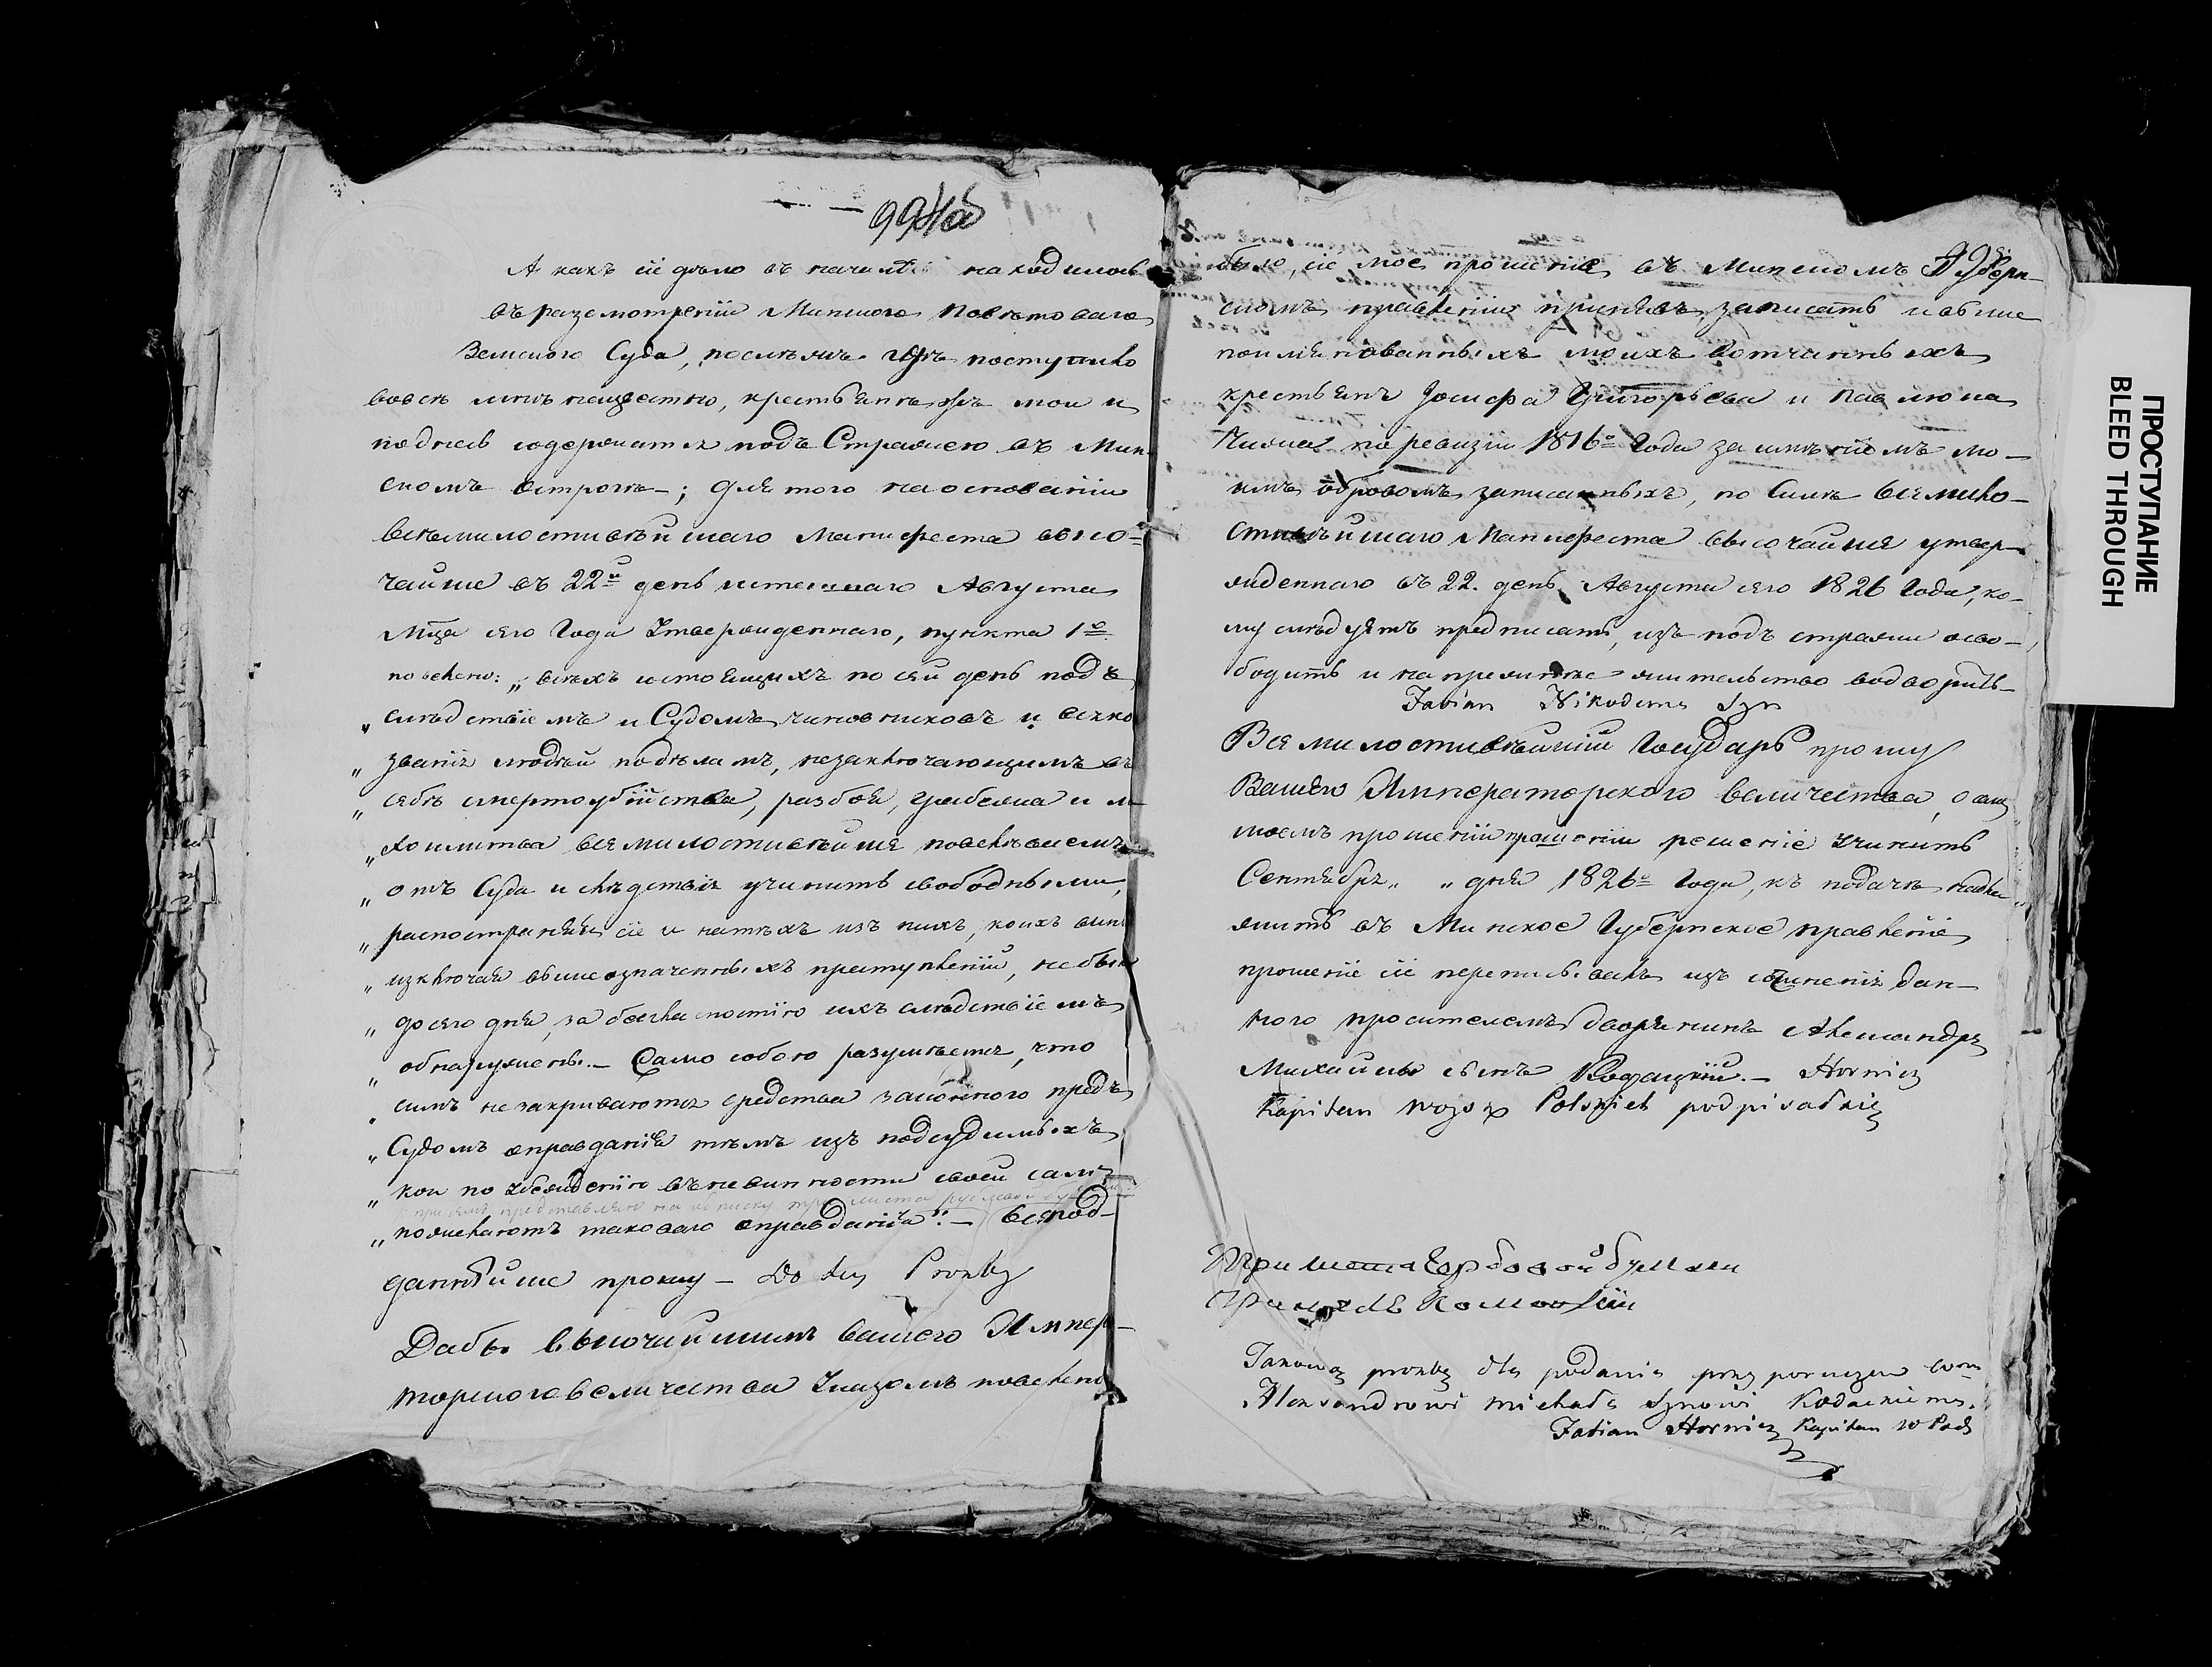 А какъ сіе дѣло въ началѣ находилось
въ разсмотреніи Минскаго Повѣтоваго
Земскаго Суда, послѣ же гдѣ поступило
вовсѣ мнѣ неизвестно, крестьянѣ же мои и
поднесь содержатся подъ Стражею въ Мин-
скомъ Острогѣ; для того на основаніи
всемилостивѣйшаго Манифеста высо-
чайше въ 22й день истекшаго Августа
Мца сего Года Утвержденнаго, пункта 1о
повелено: „всѣхъ состоящихъ по сей день подъ
„слѣдствіемъ и Судомъ чиновниковъ и всяко
„званія людѣй подѣламъ, незаключающимъ въ
„себѣ смертоубійства, разбоя, грабежа и л
„хоимства всемилостивѣйше повелѣваемъ
„отъ Суда и слѣдствія учинить свободными,
„распостраняя сіе и на тѣхъ изъ нихъ, коихъ вины
„изключая вышеозначенныхъ преступленіи, небыли
„до сего дня, за безгласностію ихъ слѣдствіемъ
„обнаружены. — Само собою разумѣется, что
„симъ незакриваются средства законного предъ
„Судомъ оправданія тѣмъ изъ подсудимыхъ,
„кои по Убежденію въ невинности своей сами
при семъ представляю на записку три листа
„пожелаютъ таковаго оправданія“. — Всепод-
даннѣйше прошу — Do tey Prozby
Дабы высочайшимъ Вашего Импера-
торскаго величества Указомъ повелено
994об
было, сіе мое прошеніе въ Минскомъ Губерн-
скомъ правленіи принявъ записать и выше
поимянованныхъ моихъ вотчинныхъ
крестьянъ Іосифа Григорьева и Павлюка
по ревизіи 1816о Года за имѣніемъ мо-
имъ записанныхъ, по Силѣ Всемило-
стивѣйшаго Манифеста высочайше утвер-
жденнаго въ 22. день Августа сего 1826 Года, ко-
му слѣдуетъ предписать, изъ подъ стражи осво-
бодить и на прежнѣе жительство водворить —
Fabian Nikodema Syn
Всемилостивѣйшій Государь прошу
Вашего Императорского Величества, о семъ
моемъ прошеніи прошеніи решеніе Учинить
Сентября „ „ дня 1826о Года, къ подачѣ надле
житъ въ Минское Губернское правленіе
прошеніе сіе переписывалъ изъ сочиненія дан-
ного просителемъ дворянинъ Александръ
Михайловъ сынъ Кодацкій. — Hornicz
Kapitan woysk Polskich podpisałsię
Три листа Гербовой бумаги
Takową prozbę dla podania przy poruczeniu
Alexandrowi Michała Synowi Kodackiemu.
Fabian Hornicz Kapitan W Pols
ПРОСТУПАНИЕ
BLEED THROUGH